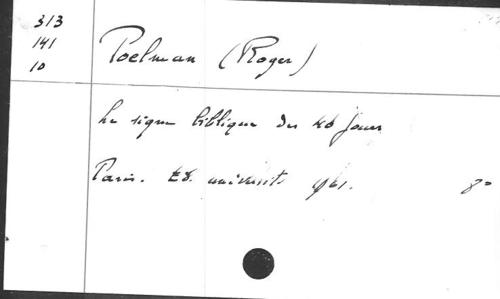 313
141
10
Poelman (Roger)
Le signe biblique des 40 jours
Paris. Ed. universit. 961. 8°